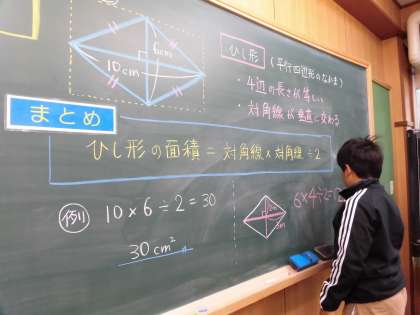 6cm
10cm
ひし形
(平行四辺形のなかま)
・4辺の長さが等しい
・対角線が垂直に交わる
まとめ
ひし形の面積 = 対角線 × 対角線 ÷ 2
例1
10 × 6 ÷ 2 = 30
30 cm²
6×4÷2=12